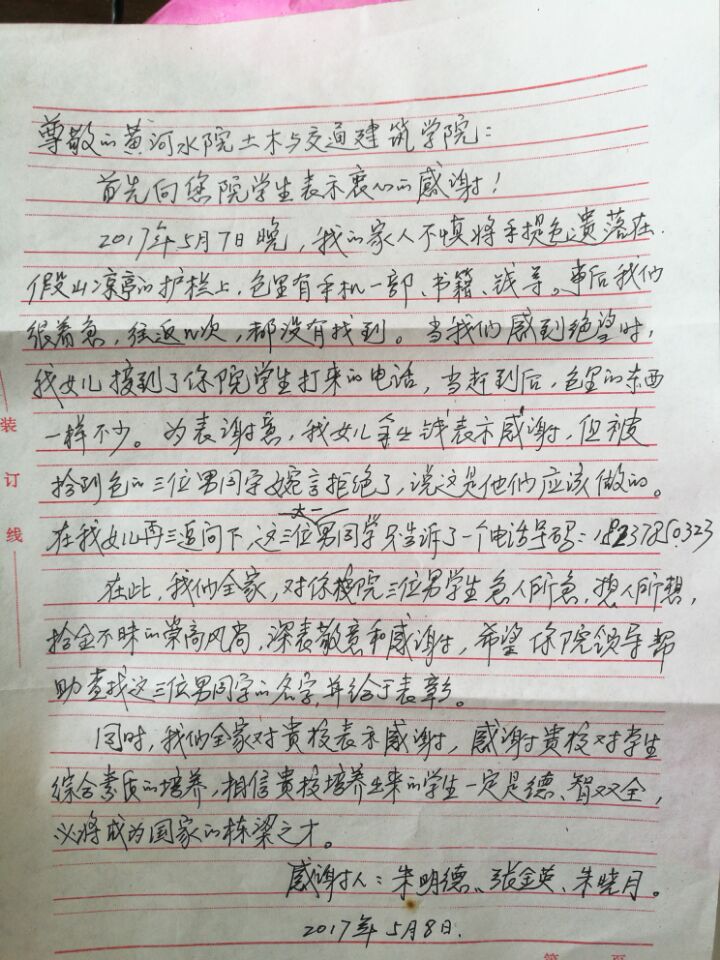 尊敬的黄河水院土木与交通建筑学院：
首先向您院学生表示衷心的感谢！
2017年5月7日晚，我的家人不慎将手提包遗落在
假山凉亭的护栏上，包里有手机一部、书籍、钱等。事后我们
很着急，往返几次，都没有找到。当我们感到绝望时，
我女儿接到了你院学生打来的电话，当赶到后，包里的东西
一样不少。为表谢意，我女儿拿出钱表示感谢，但被
拾到包的三位男同学婉言拒绝了，说这是他们应该做的。
大一
在我女儿再三追问下，这三位男同学只告诉了一个电话号码：18237850323
在此，我们全家，对你院三位男学生急人所急，想人所想，
拾金不昧的崇高风尚，深表敬意和感谢，希望你院领导帮
助查找这三位男同学的名字，并给于表彰。
同时，我们全家对贵校表示感谢，感谢贵校对学生
综合素质的培养，相信贵校培养出来的学生一定是德、智双全，
必将成为国家的栋梁之才。
感谢人：朱明德、张金英、朱晓月。
2017年5月8日.
装
订
线
第 页